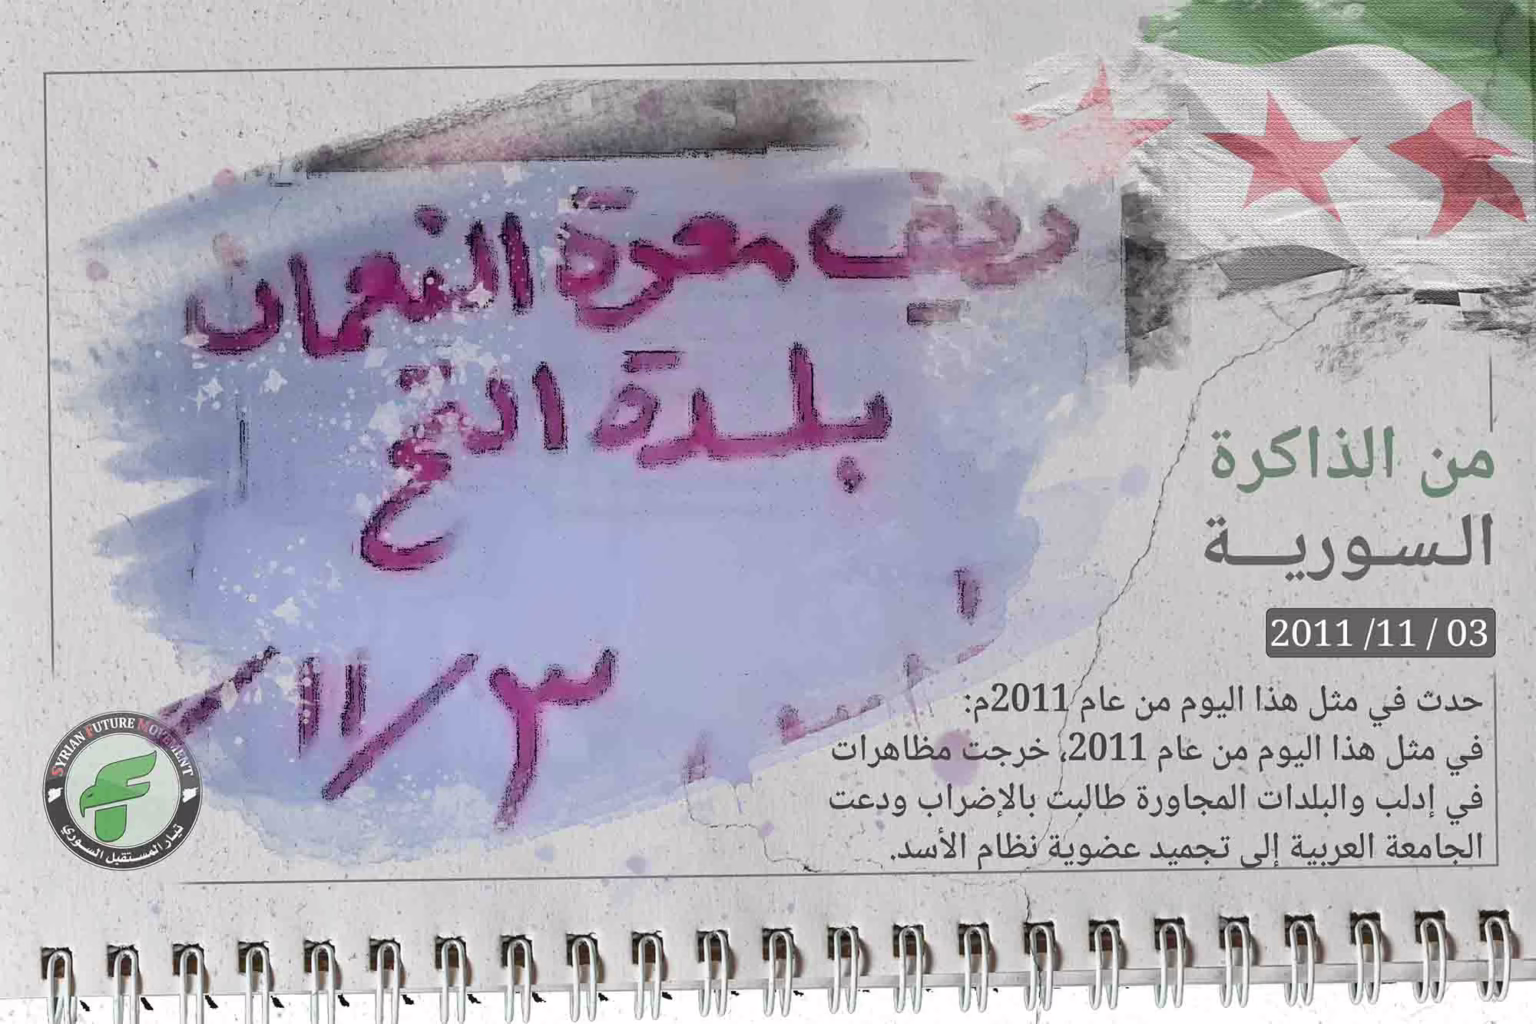 ريف معرة النعمان
بلدة التح
٣/١١/
من الذاكرة
السورية
2011 /11 / 03
حدث في مثل هذا اليوم من عام 2011م:
في مثل هذا اليوم من عام 2011، خرجت مظاهرات
في إدلب والبلدات المجاورة طالبت بالإضراب ودعت
الجامعة العربية إلى تجميد عضوية نظام الأسد.
SYRIAN FUTURE MOVEMENT
تيار المستقبل السوري